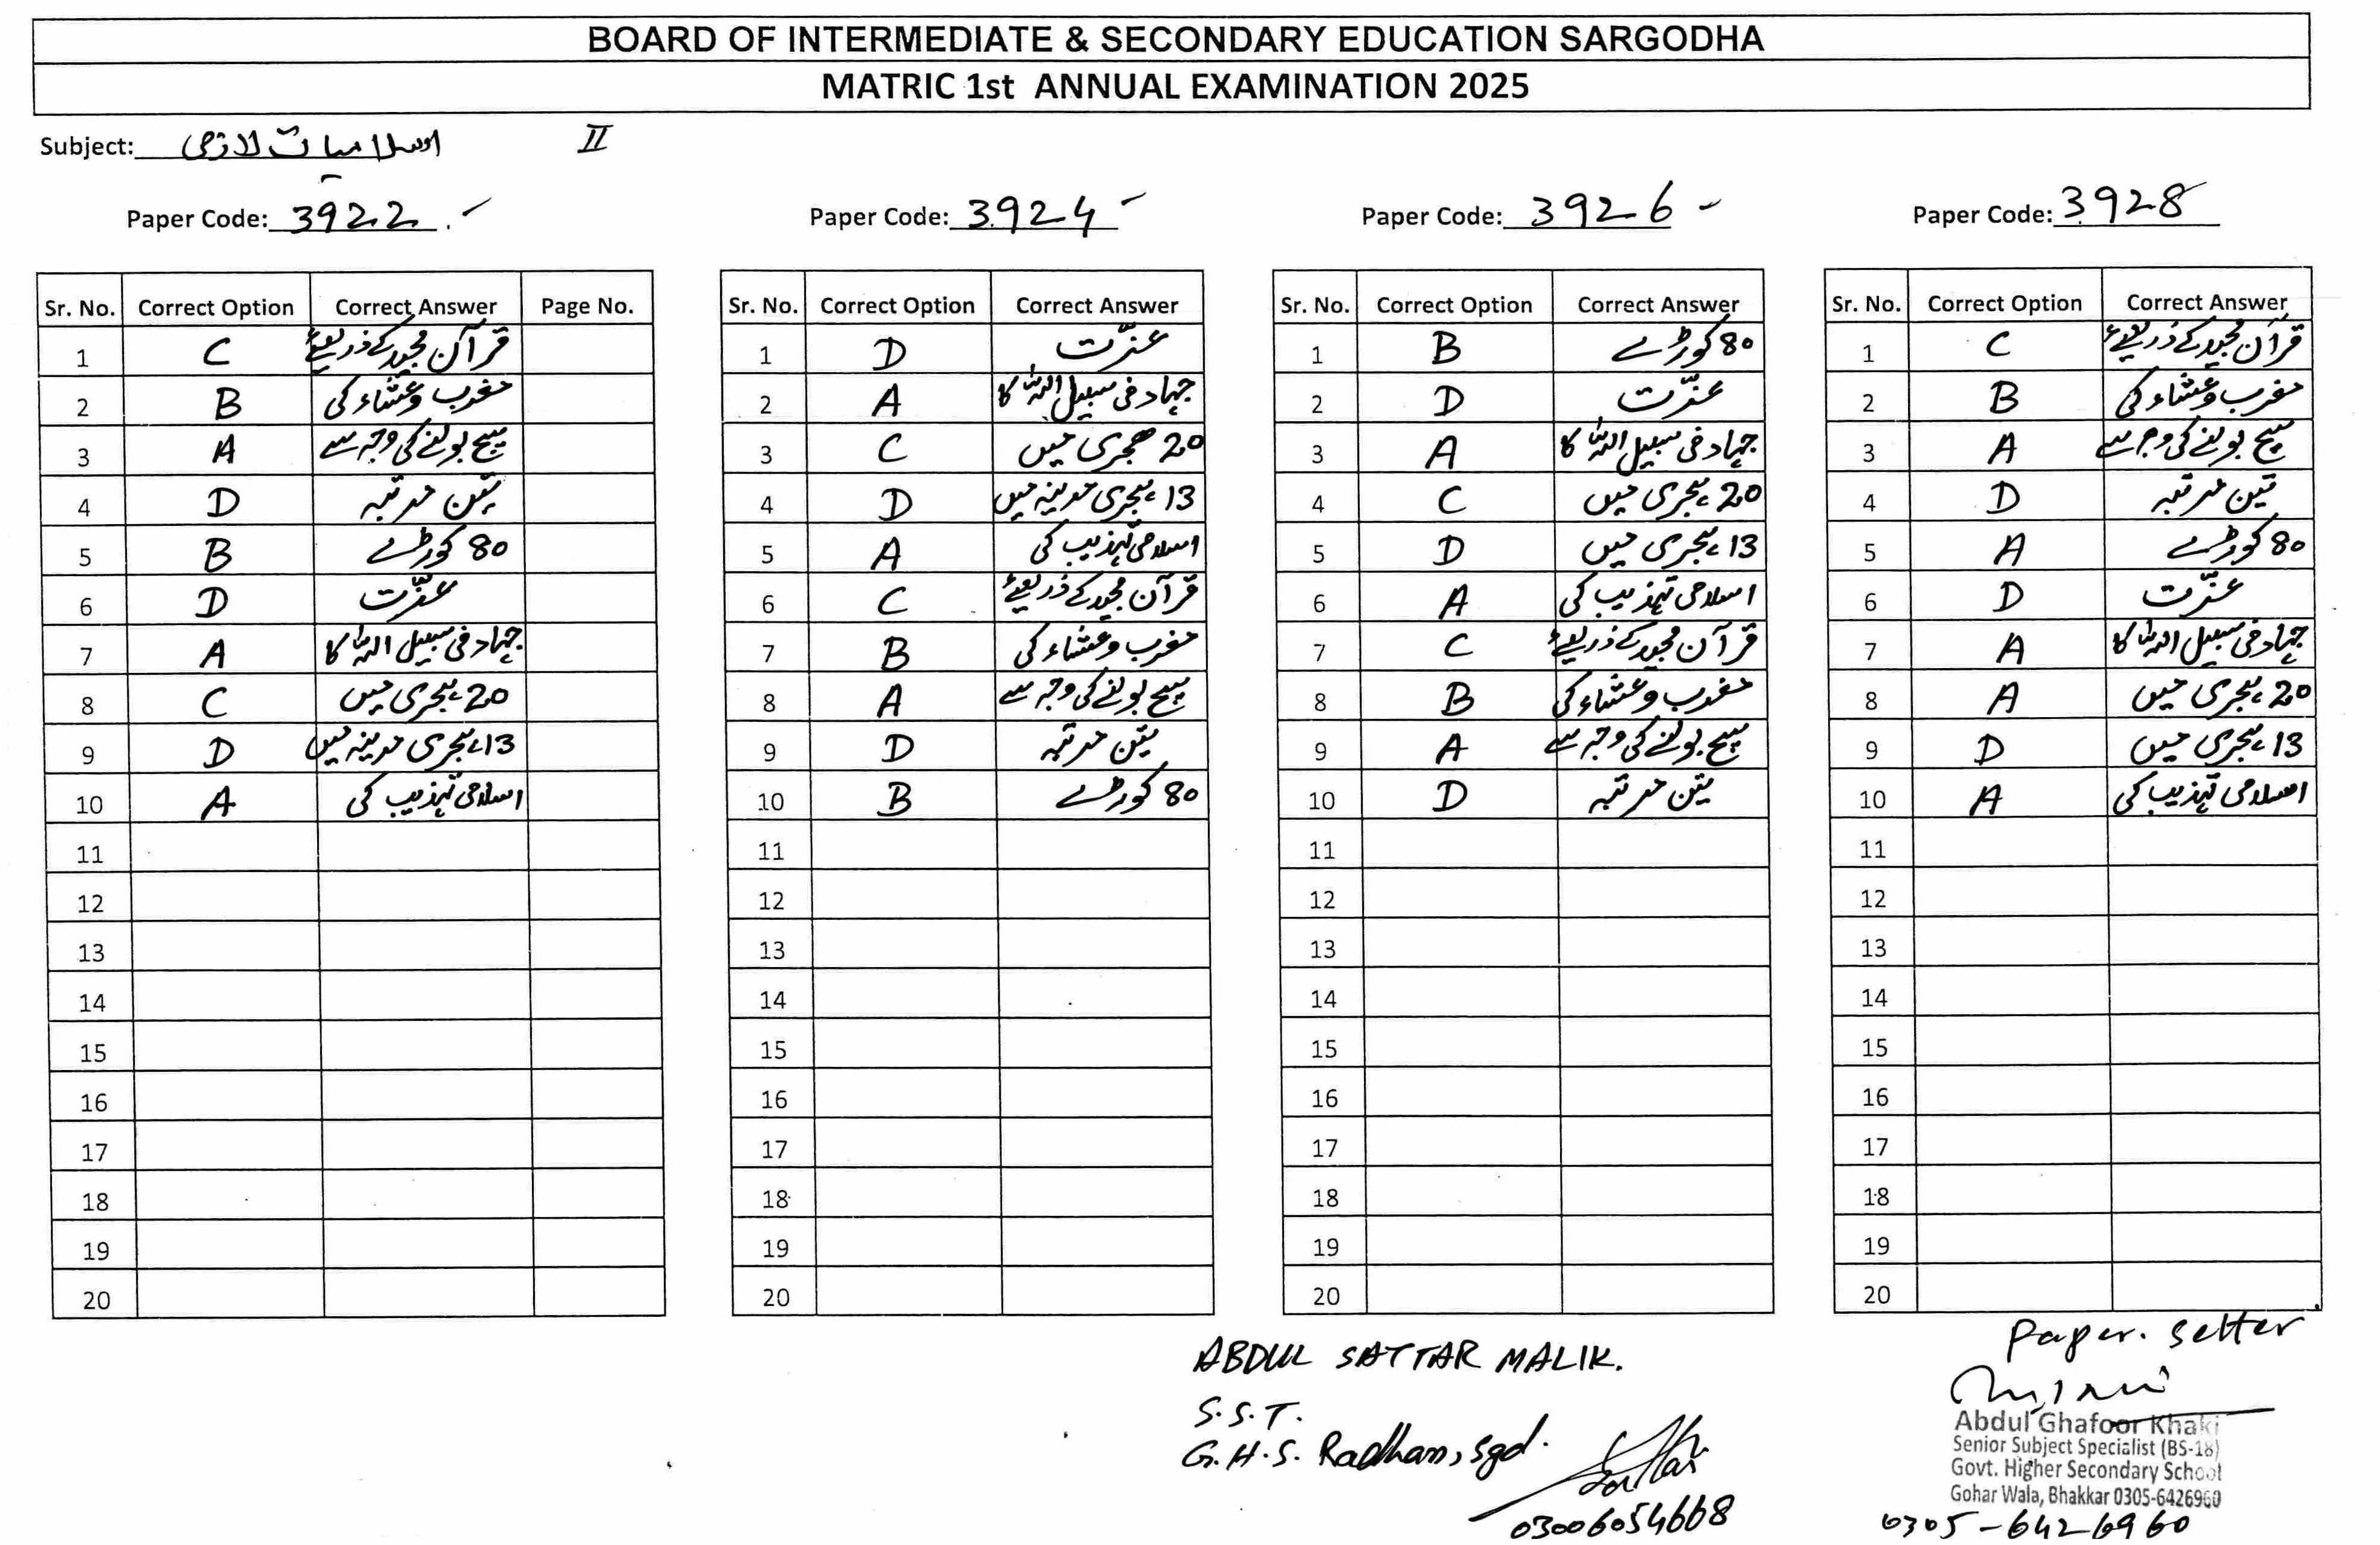 BOARD OF INTERMEDIATE & SECONDARY EDUCATION SARGODHA
MATRIC 1st ANNUAL EXAMINATION 2025
Subject: اسلامیات لازمی II
Paper Code: 3922
Sr. No. Correct Option Correct Answer Page No.
1 C قرآن مجید کے ذریعے
2 B مغرب وعشاء کی
3 A سچ بولنے کی وجہ سے
4 D تین مرتبہ
5 B 80 کوڑے
6 D عزّت
7 A جہاد فی سبیل اللہ کا
8 C 20 ہجری میں
9 D 13 ہجری مدینہ میں
10 A اسلامی تہذیب کی
11
12
13
14
15
16
17
18
19
20
Paper Code: 3924
Sr. No. Correct Option Correct Answer
1 D عزّت
2 A جہاد فی سبیل اللہ کا
3 C 20 ھجری میں
4 D 13 ہجری مدینہ میں
5 A اسلامی تہذیب کی
6 C قرآن مجید کے ذریعے
7 B مغرب وعشاء کی
8 A سچ بولنے کی وجہ سے
9 D تین مرتبہ
10 B 80 کوڑے
11
12
13
14
15
16
17
18
19
20
Paper Code: 3926
Sr. No. Correct Option Correct Answer
1 B 80 کوڑے
2 D عزّت
3 A جہاد فی سبیل اللہ کا
4 C 20 ہجری میں
5 D 13 ہجری میں
6 A اسلامی تہذیب کی
7 C قرآن مجید کے ذریعے
8 B مغرب وعشاء کی
9 A سچ بولنے کی وجہ سے
10 D تین مرتبہ
11
12
13
14
15
16
17
18
19
20
Paper Code: 3928
Sr. No. Correct Option Correct Answer
1 C قرآن مجید کے ذریعے
2 B مغرب وعشاء کی
3 A سچ بولنے کی وجہ سے
4 D تین مرتبہ
5 A 80 کوڑے
6 D عزّت
7 A جہاد فی سبیل اللہ کا
8 A 20 ہجری میں
9 D 13 ہجری میں
10 A اسلامی تہذیب کی
11
12
13
14
15
16
17
18
19
20
ABDUL SATTAR MALIK.
S.S.T.
G.H.S. Radhan, Sgd.
03006054668
Paper. Setter
Abdul Ghafoor Khaki
Senior Subject Specialist (BS-18)
Govt. Higher Secondary School
Gohar Wala, Bhakkar 0305-6426960
0305-6426960